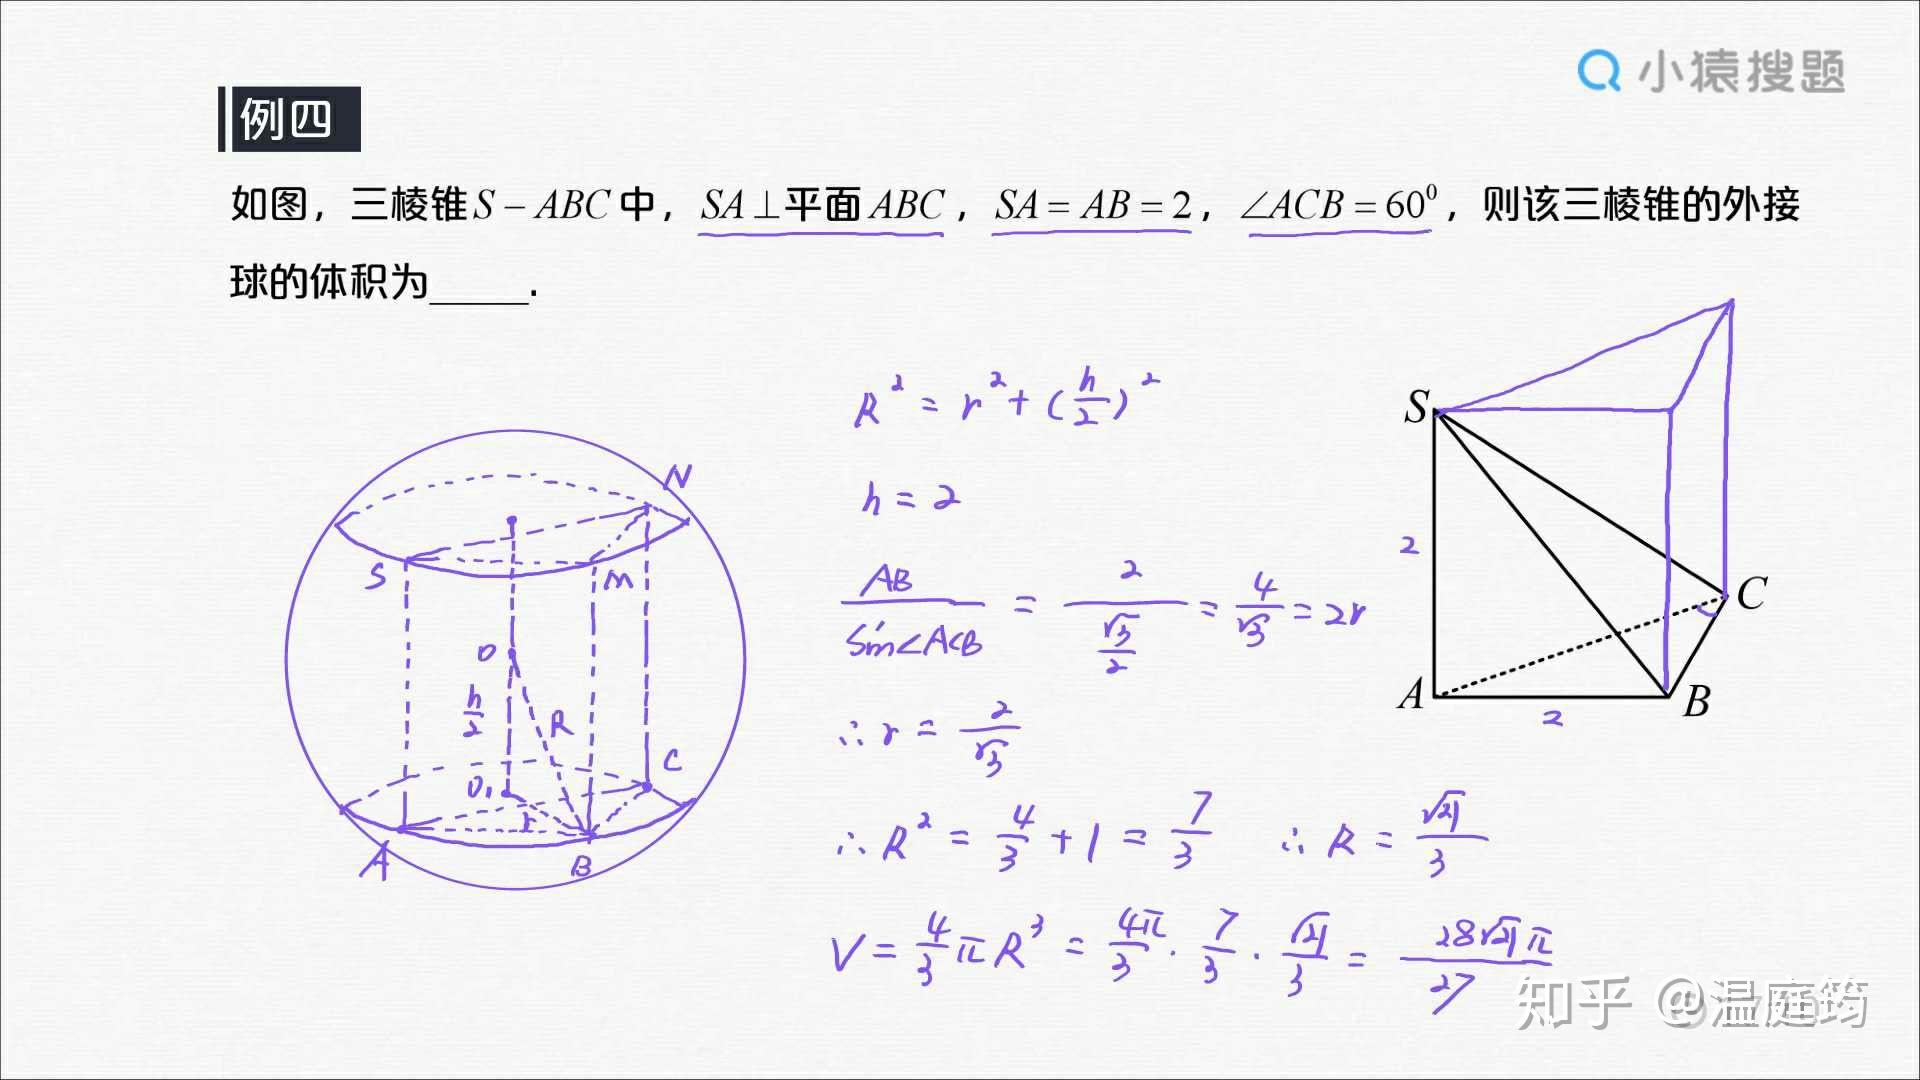 小猿搜题
例四
如图，三棱锥S－ABC中，SA⊥平面ABC，SA=AB=2，∠ACB=60⁰，则该三棱锥的外接
球的体积为_____.
R² = r² + (h/2)²
h = 2
AB/Sin∠ACB = 2/(√3/2) = 4/√3 = 2r
∴ r = 2/√3
∴ R² = 4/3 + 1 = 7/3 ∴ R = √21/3
V = 4/3 π R³ = 4π/3 · 7/3 · √21/3 = 28√21π/27
N
S
M
O
h/2
R
C
O₁
r
A
B
S
2
C
A
B
2
知乎 @温庭筠